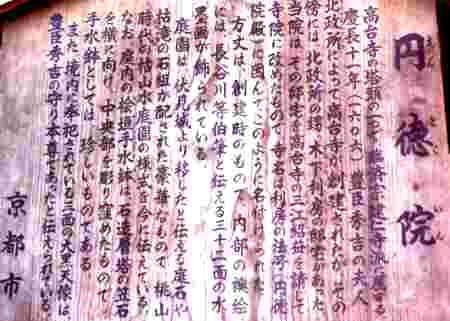 円徳院
えんとくいん
高台寺の塔頭の一つで、臨済宗建仁寺派に属する。
慶長十一年(一六〇六)豊臣秀吉の夫人
北政所によって高台寺が創建されたが、その
傍には、北政所の甥・木下利房の邸宅があった。
当院は、その邸宅を高台寺の三江紹益を請じて
寺院に改めたもので、寺名は利房の法号・円徳
院殿に因んでこのように名付けられた。
方丈は、創建時のもので、内部の襖絵
には、長谷川等伯筆と伝える三十二面の水
墨画が飾られている。
庭園は、伏見城より移したと伝える庭石や
枯滝の石組が配された豪華なもので、桃山
時代の枯山水庭園の様式を今に伝えている。
なお、庭内の桧垣手水鉢は、石造層塔の笠石
を横に向け、中央部を彫り窪めたもので、
手水鉢としては、珍しいものである。
また、境内に奉祀されている三面の大黒天像は、
豊臣秀吉の守り本尊であったと伝えられている。
京都市